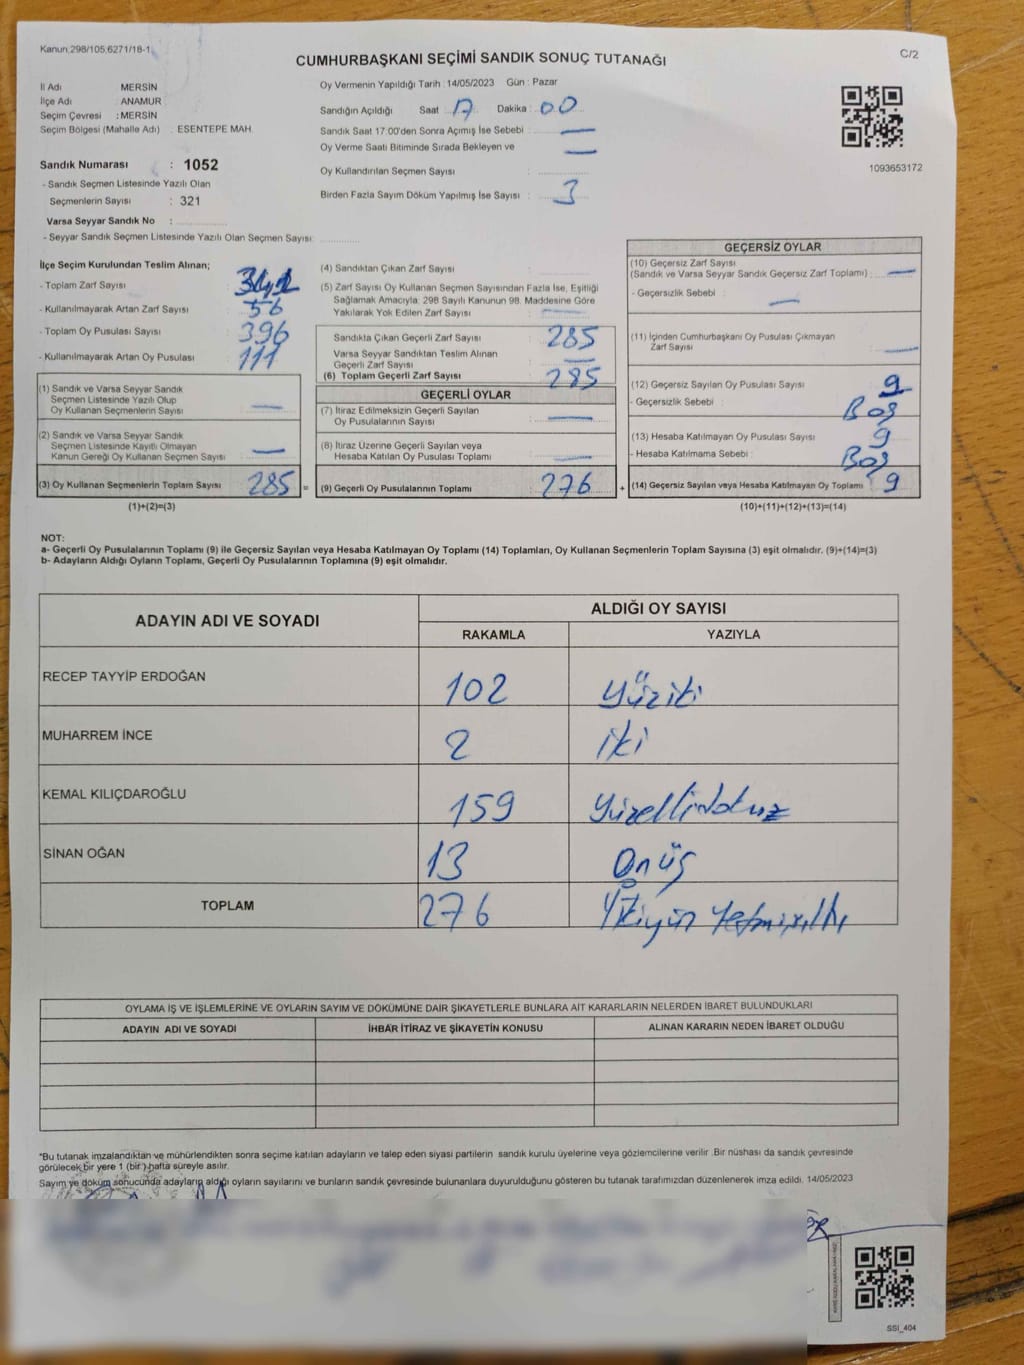 Kanun.298/105,6271/18-1
C/2
CUMHURBAŞKANI SEÇİMİ SANDIK SONUÇ TUTANAĞI
İl Adı MERSİN
İlçe Adı ANAMUR
Seçim Çevresi : MERSİN
Seçim Bölgesi (Mahalle Adı) : ESENTEPE MAH.
Sandık Numarası : 1052
- Sandık Seçmen Listesinde Yazılı Olan
Seçmenlerin Sayısı : 321
Varsa Seyyar Sandık No :
- Seyyar Sandık Seçmen Listesinde Yazılı Olan Seçmen Sayısı:
Oy Vermenin Yapıldığı Tarih : 14/05/2023 Gün : Pazar
Sandığın Açıldığı Saat 17 Dakika : 00
Sandık Saat 17:00'den Sonra Açımış İse Sebebi : —
Oy Verme Saati Bitiminde Sırada Bekleyen ve —
Oy Kullandırılan Seçmen Sayısı :
Birden Fazla Sayım Döküm Yapılmış İse Sayısı : 3
1093653172
İlçe Seçim Kurulundan Teslim Alınan;
- Toplam Zarf Sayısı :
- Kullanılmayarak Artan Zarf Sayısı : 56
- Toplam Oy Pusulası Sayısı : 396
- Kullanılmayarak Artan Oy Pusulası : 111
(1) Sandık ve Varsa Seyyar Sandık
Seçmen Listesinde Yazılı Olup
Oy Kullanan Seçmenlerin Sayısı : —
(2) Sandık ve Varsa Seyyar Sandık
Seçmen Listesinde Kayıtlı Olmayan
Kanun Gereği Oy Kullanan Seçmen Sayısı : —
(3) Oy Kullanan Seçmenlerin Toplam Sayısı 285 =
(1)+(2)=(3)
(4) Sandıktan Çıkan Zarf Sayısı :
(5) Zarf Sayısı Oy Kullanan Seçmen Sayısından Fazla İse, Eşitliği
Sağlamak Amacıyla; 298 Sayılı Kanunun 98. Maddesine Göre
Yakılarak Yok Edilen Zarf Sayısı : —
Sandıkta Çıkan Geçerli Zarf Sayısı : 285
Varsa Seyyar Sandıktan Teslim Alınan
Geçerli Zarf Sayısı : —
(6) Toplam Geçerli Zarf Sayısı : 285
GEÇERLİ OYLAR
(7) İtiraz Edilmeksizin Geçerli Sayılan
Oy Pusulalarının Sayısı : —
(8) İtiraz Üzerine Geçerli Sayılan veya
Hesaba Katılan Oy Pusulası Toplamı : —
(9) Geçerli Oy Pusulalarının Toplamı : 276 +
GEÇERSİZ OYLAR
(10) Geçersiz Zarf Sayısı
(Sandık ve Varsa Seyyar Sandık Geçersiz Zarf Toplamı) : —
- Geçersizlik Sebebi : —
(11) İçinden Cumhurbaşkanı Oy Pusulası Çıkmayan
Zarf Sayısı : —
(12) Geçersiz Sayılan Oy Pusulası Sayısı : 9
- Geçersizlik Sebebi : Boş
(13) Hesaba Katılmayan Oy Pusulası Sayısı : 9
- Hesaba Katılmama Sebebi : Boş
(14) Geçersiz Sayılan veya Hesaba Katılmayan Oy Toplamı : 9
(10)+(11)+(12)+(13)=(14)
NOT:
a- Geçerli Oy Pusulalarının Toplamı (9) ile Geçersiz Sayılan veya Hesaba Katılmayan Oy Toplamı (14) Toplamları, Oy Kullanan Seçmenlerin Toplam Sayısına (3) eşit olmalıdır. (9)+(14)=(3)
b- Adayların Aldığı Oyların Toplamı, Geçerli Oy Pusulalarının Toplamına (9) eşit olmalıdır.
ADAYIN ADI VE SOYADI
ALDIĞI OY SAYISI
RAKAMLA YAZIYLA
RECEP TAYYİP ERDOĞAN 102 Yüziki
MUHARREM İNCE 2 iki
KEMAL KILIÇDAROĞLU 159 Yüzellidokuz
SİNAN OĞAN 13 Onüç
TOPLAM 276 İkiyüz Yetmişaltı
OYLAMA İŞ VE İŞLEMLERİNE VE OYLARIN SAYIM VE DÖKÜMÜNE DAİR ŞİKAYETLERLE BUNLARA AİT KARARLARIN NELERDEN İBARET BULUNDUKLARI
ADAYIN ADI VE SOYADI İHBAR İTİRAZ VE ŞİKAYETİN KONUSU ALINAN KARARIN NEDEN İBARET OLDUĞU
*Bu tutanak imzalandıktan ve mühürlendikten sonra seçime katılan adayların ve talep eden siyasi partilerin sandık kurulu üyelerine veya gözlemcilerine verilir .Bir nüshası da sandık çevresinde
görülecek bir yere 1 (bir ) hafta süreyle asılır.
Sayım ve döküm sonucunda adayların aldığı oyların sayılarını ve bunların sandık çevresinde bulunanlara duyurulduğunu gösteren bu tutanak tarafımızdan düzenlenerek imza edildi. 14/05/2023
SSİ_404